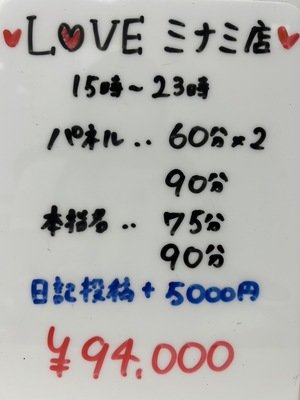 ♥LOVE ミナミ店♥
15時〜23時
パネル‥60分×2
90分
本指名‥75分
90分
日記投稿+5000円
¥94,000